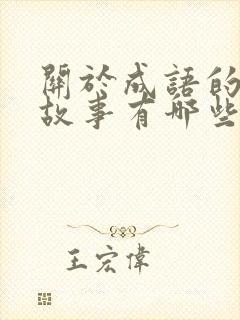 關於成語的
故事有哪些
王宏偉